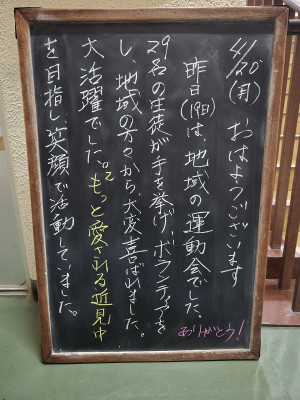 4/20(月) おはようございます
昨日(19日)は、地域の運動会でした。
29名の生徒が手を挙げ、ボランティアを
し、地域の方々から大変喜ばれました。
大活躍でした。"もっと愛される近見中
を目指し、笑顔で活動していました。
ありがとう!